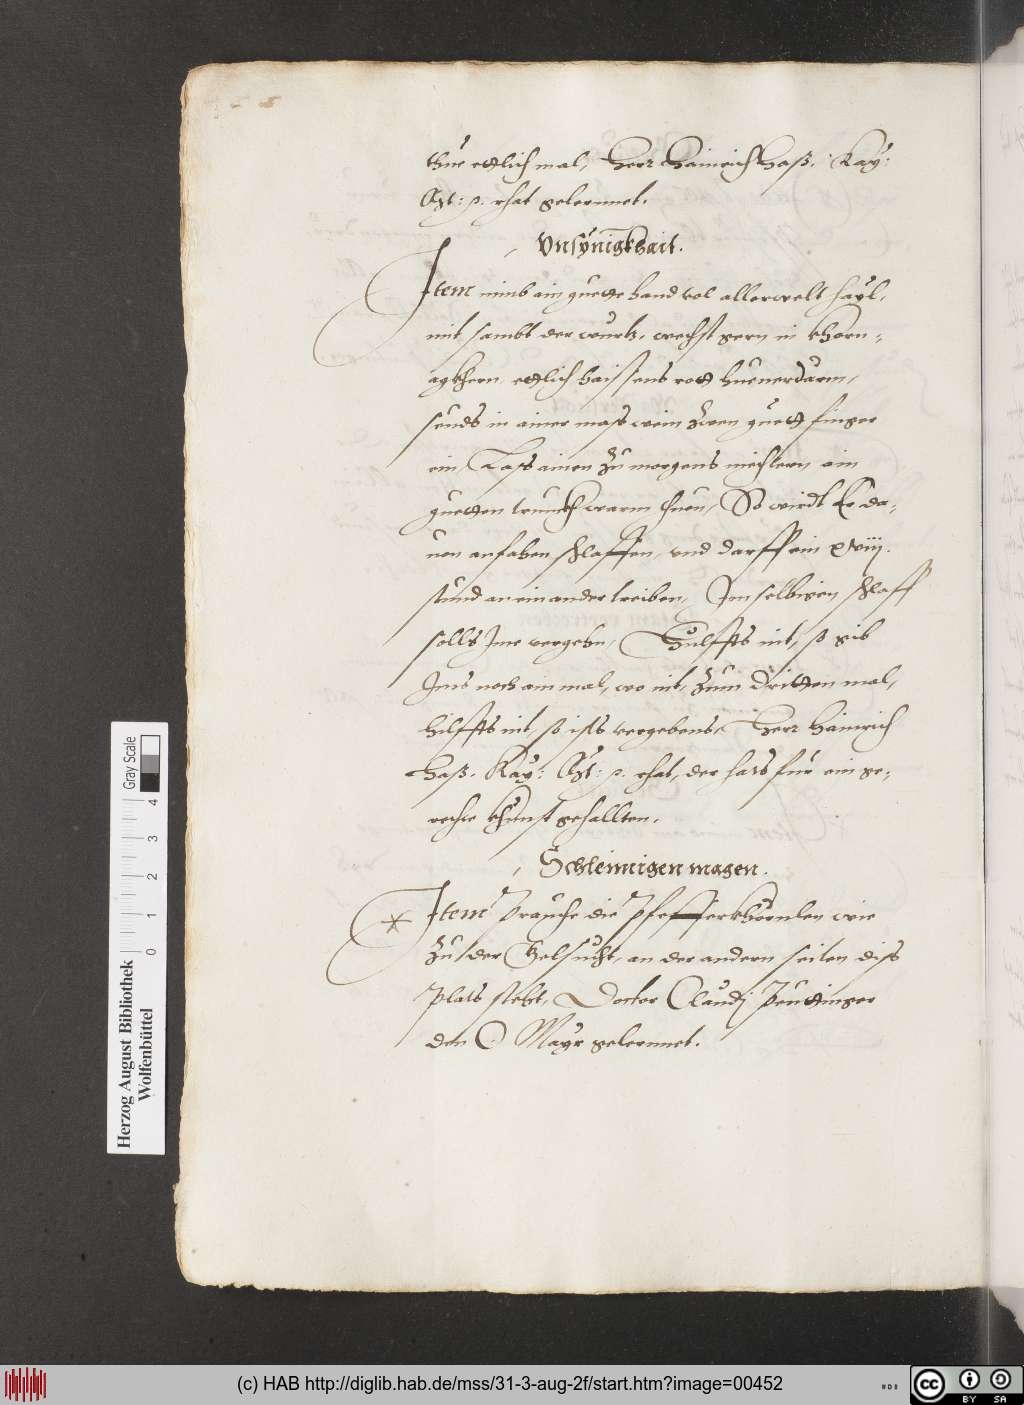 thue ettlich mal, Herr Hainrich Haß. Kay:
Mt: p. rhat gelernnet.
Vnsÿnigkhait.
Item nimb ain guette hand vol allerwelt hayl,
mit sambt der wurtz, wechst gern in khorn-
agkhern, ettlich haissens rott huenerdarm,
seuds in ainer mass wein zwen guett finger
ein, Lass ainen zu morgens niechtern ain
guetten trunckh warm thuen, So wirdt Er da-
uon anfahen schlaffen, vnd darff ein xviij.
stund an einander treiben, Im selbigen schlaff
solls Ime vergehn, Hulffts nit, so gib
Ims noch ain mal, wo nit, zum dritten mal,
hilffts nit, so ists vergebens, Herr Hainrich
Haß. Kay: Mt: p. rhat, der hats für ein ge-
rechte khunst gehallten.
Schleimigen magen.
* Item prauche die Pfefferkhörnlen wie
zu der Gelsucht, an der andern seiten diss
Plats steht, Doctor Claudj Peuttinger
den C. Mayr gelernnet.
Herzog August Bibliothek
Wolfenbüttel
Gray Scale
0 1 2 3 4
(c) HAB http://diglib.hab.de/mss/31-3-aug-2f/start.htm?image=00452
cc BY SA